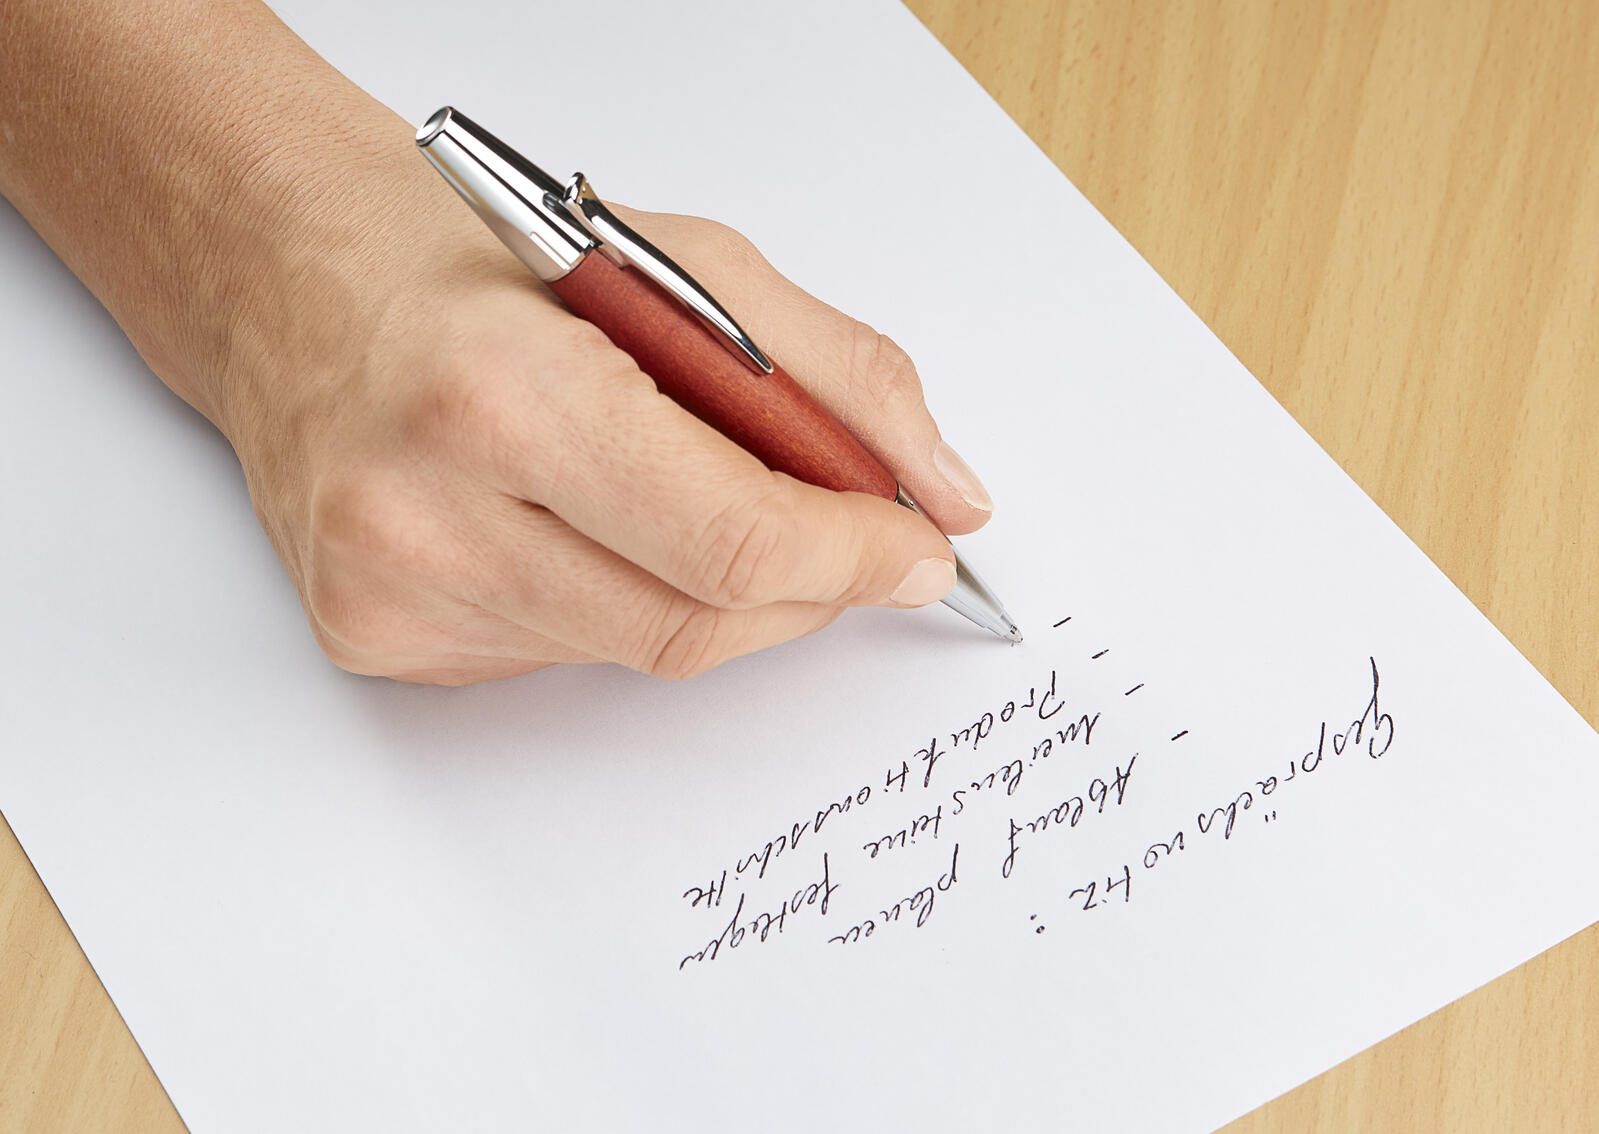 Gesprächsnotiz:
- Ablauf planen
- Meilensteine festlegen
- Produktionsschritte
-